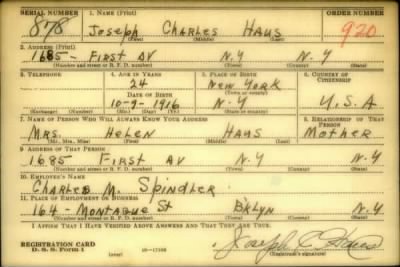 SERIAL NUMBER 1. NAME (Print) ORDER NUMBER
878 Joseph Charles Haus 920
(First) (Middle) (Last)
2. ADDRESS (Print)
1685 - First Av N.Y N.Y
(Number and street or R. F. D. number) (Town) (County) (State)
3. TELEPHONE 4. AGE IN YEARS 5. PLACE OF BIRTH 6. COUNTRY OF CITIZENSHIP
24 New York
DATE OF BIRTH (Town or county)
10-9-1916 N-Y U.S.A
(Exchange) (Number) (Mo.) (Day) (Yr.) (State or country)
7. NAME OF PERSON WHO WILL ALWAYS KNOW YOUR ADDRESS 8. RELATIONSHIP OF THAT PERSON
Mrs. Helen Haus Mother
(Mr., Mrs., Miss) (First) (Middle) (Last)
9. ADDRESS OF THAT PERSON
1685 First Av N.Y N-Y
(Number and street or R. F. D. number) (Town) (County) (State)
10. EMPLOYER'S NAME
Charles M. Spindler
11. PLACE OF EMPLOYMENT OR BUSINESS
164 - Montague St Bklyn N-Y
(Number and street or R. F. D. number) (Town) (County) (State)
I AFFIRM THAT I HAVE VERIFIED ABOVE ANSWERS AND THAT THEY ARE TRUE.
REGISTRATION CARD
D. S. S. Form 1 (over) Joseph C Haus
(Registrant's signature)